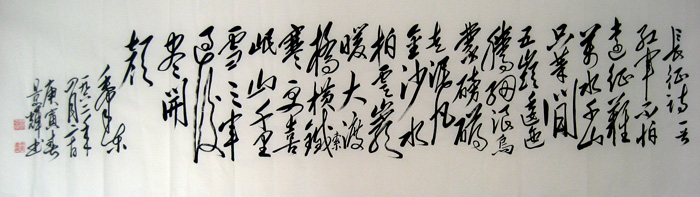 長征詩一首
紅軍不怕
遠征難
萬水千山
只等閒
五嶺逶迤
騰細浪烏
蒙磅礴
走泥丸
金沙水
拍雲巖
暖大渡
橋橫鐵索
寒更喜
岷山千里
雪三軍
過後
盡開
顏
毛澤東
一九六二年
四月二十日
庚寅春
景輝書